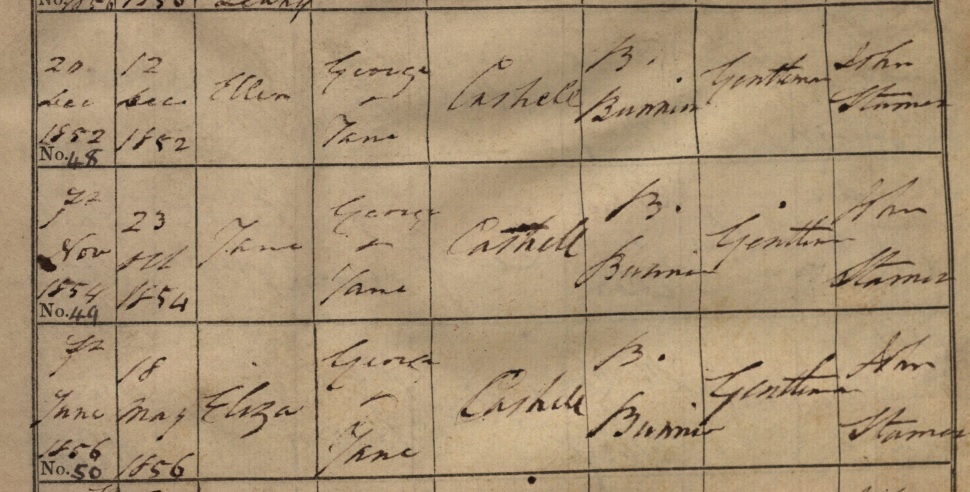 20 Dec 1852
12 Dec 1852
Ellen
George & Jane
Cashell
B. Bunnin
Gentleman
John Stamer
No. 48
Nov 1854
23 Oct 1854
Jane
George & Jane
Cashell
B. Bunnin
Gentleman
John Stamer
No. 49
June 1856
18 May 1856
Eliza
George & Jane
Cashell
B. Bunnin
Gentleman
John Stamer
No. 50